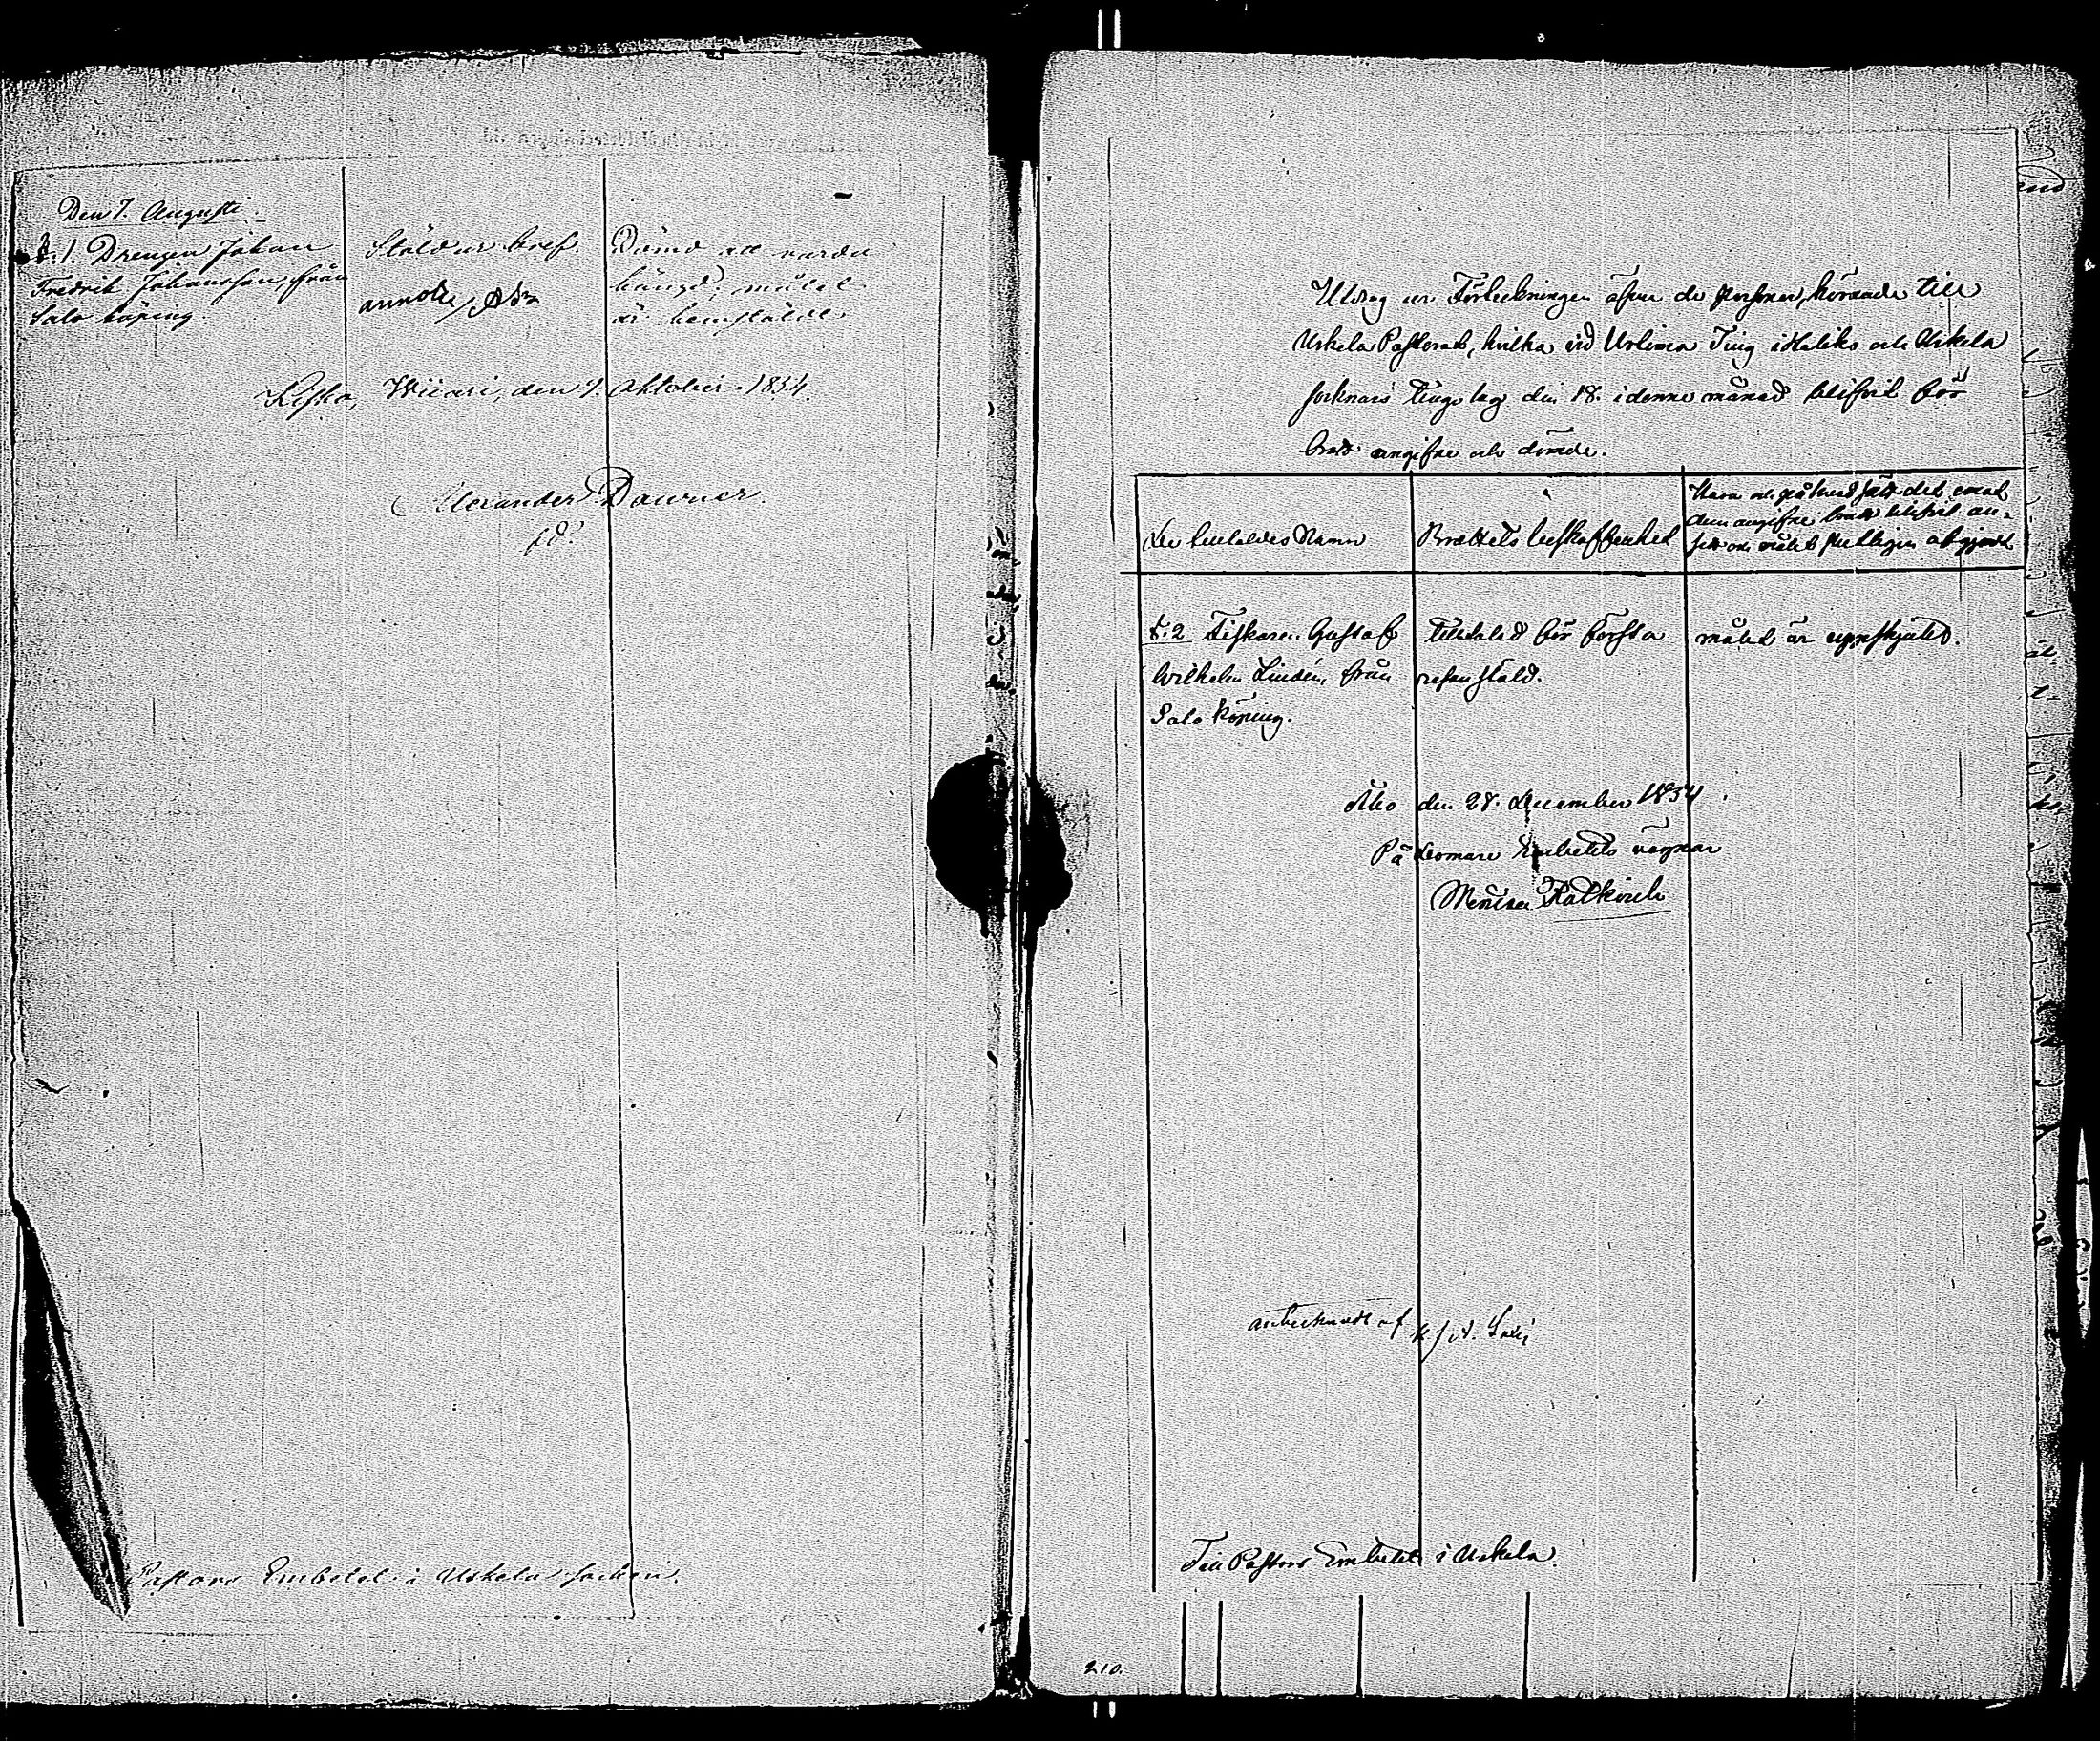 Den 7. Augusti
§. 1. Drengen Johan
Fredrik Johansson, från
Salo köping.
Stöld ur
Dömd att varda
hängd; målet
är hemstäldt.
Wiiari, den 9. Oktober 1854.
Alexander
Pastors Embetet i Uskela socken.
Utdrag ur Förteckningen öfver de personer, hörande till
Uskela Pastorat, hvilka vid Urtima Ting i Haliko och Uskela
socknars Tingslag den 18. i denne månad blifvit för
brott angifne och dömde.
De tilltaldes Namn
Brottets beskaffenhet
och på hvad sätt det emot
dem angifne brott blifvit an-
sedt och målet slutligen afgjordt
§. 2 Fiskaren Gustaf
Wilhelm Lindén, från
Salo köping.
Tilltalad för första
resan stöld.
målet är uppskjutet.
Åbo den 28. December 1854
På Domare Embetets vägnar
antecknadt af
Till Pastors Embetet i Uskela.
210.